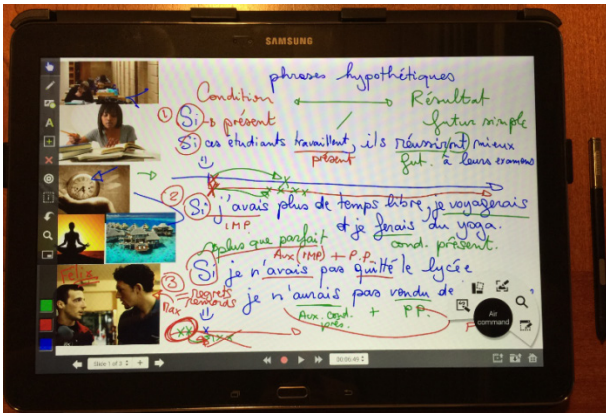 SAMSUNG
phrases hypothétiques
Condition Résultat
① Si → présent futur simple
Si ces étudiants travaillent, ils réussiront mieux
présent fut. à leurs examens
② Si j'avais plus de temps libre, je voyagerais
IMP. et je ferais du yoga.
plus que parfait cond. présent.
Aux (IMP) + P.P.
Félix
③ Si je n'avais pas quitté le lycée
= regrets
remords je n'aurais pas vendu de
Max
Aux. Cond. prés. + PP.
Air
command
Slide 1 of 2
00:00:49